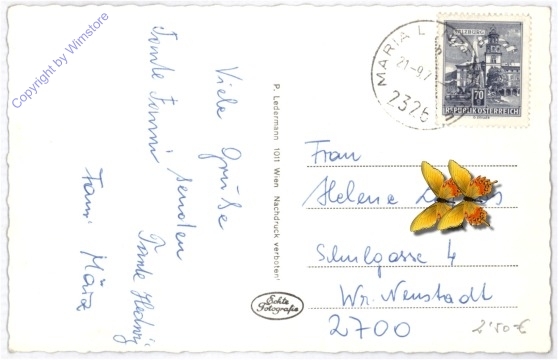 Copyright by Wimstore
Viele Grüße
Tante Fanni
senden
Tante Hedwig
Fam. März
P. Ledermann 1011 Wien Nachdruck verboten!
Echte
Fotografie
MARIA L
21.-9.7
2326
SALZBURG
70
REPUBLIK ÖSTERREICH
Frau
Helene
Schulgasse 4
Wr. Neustadt
2700
2'50 €